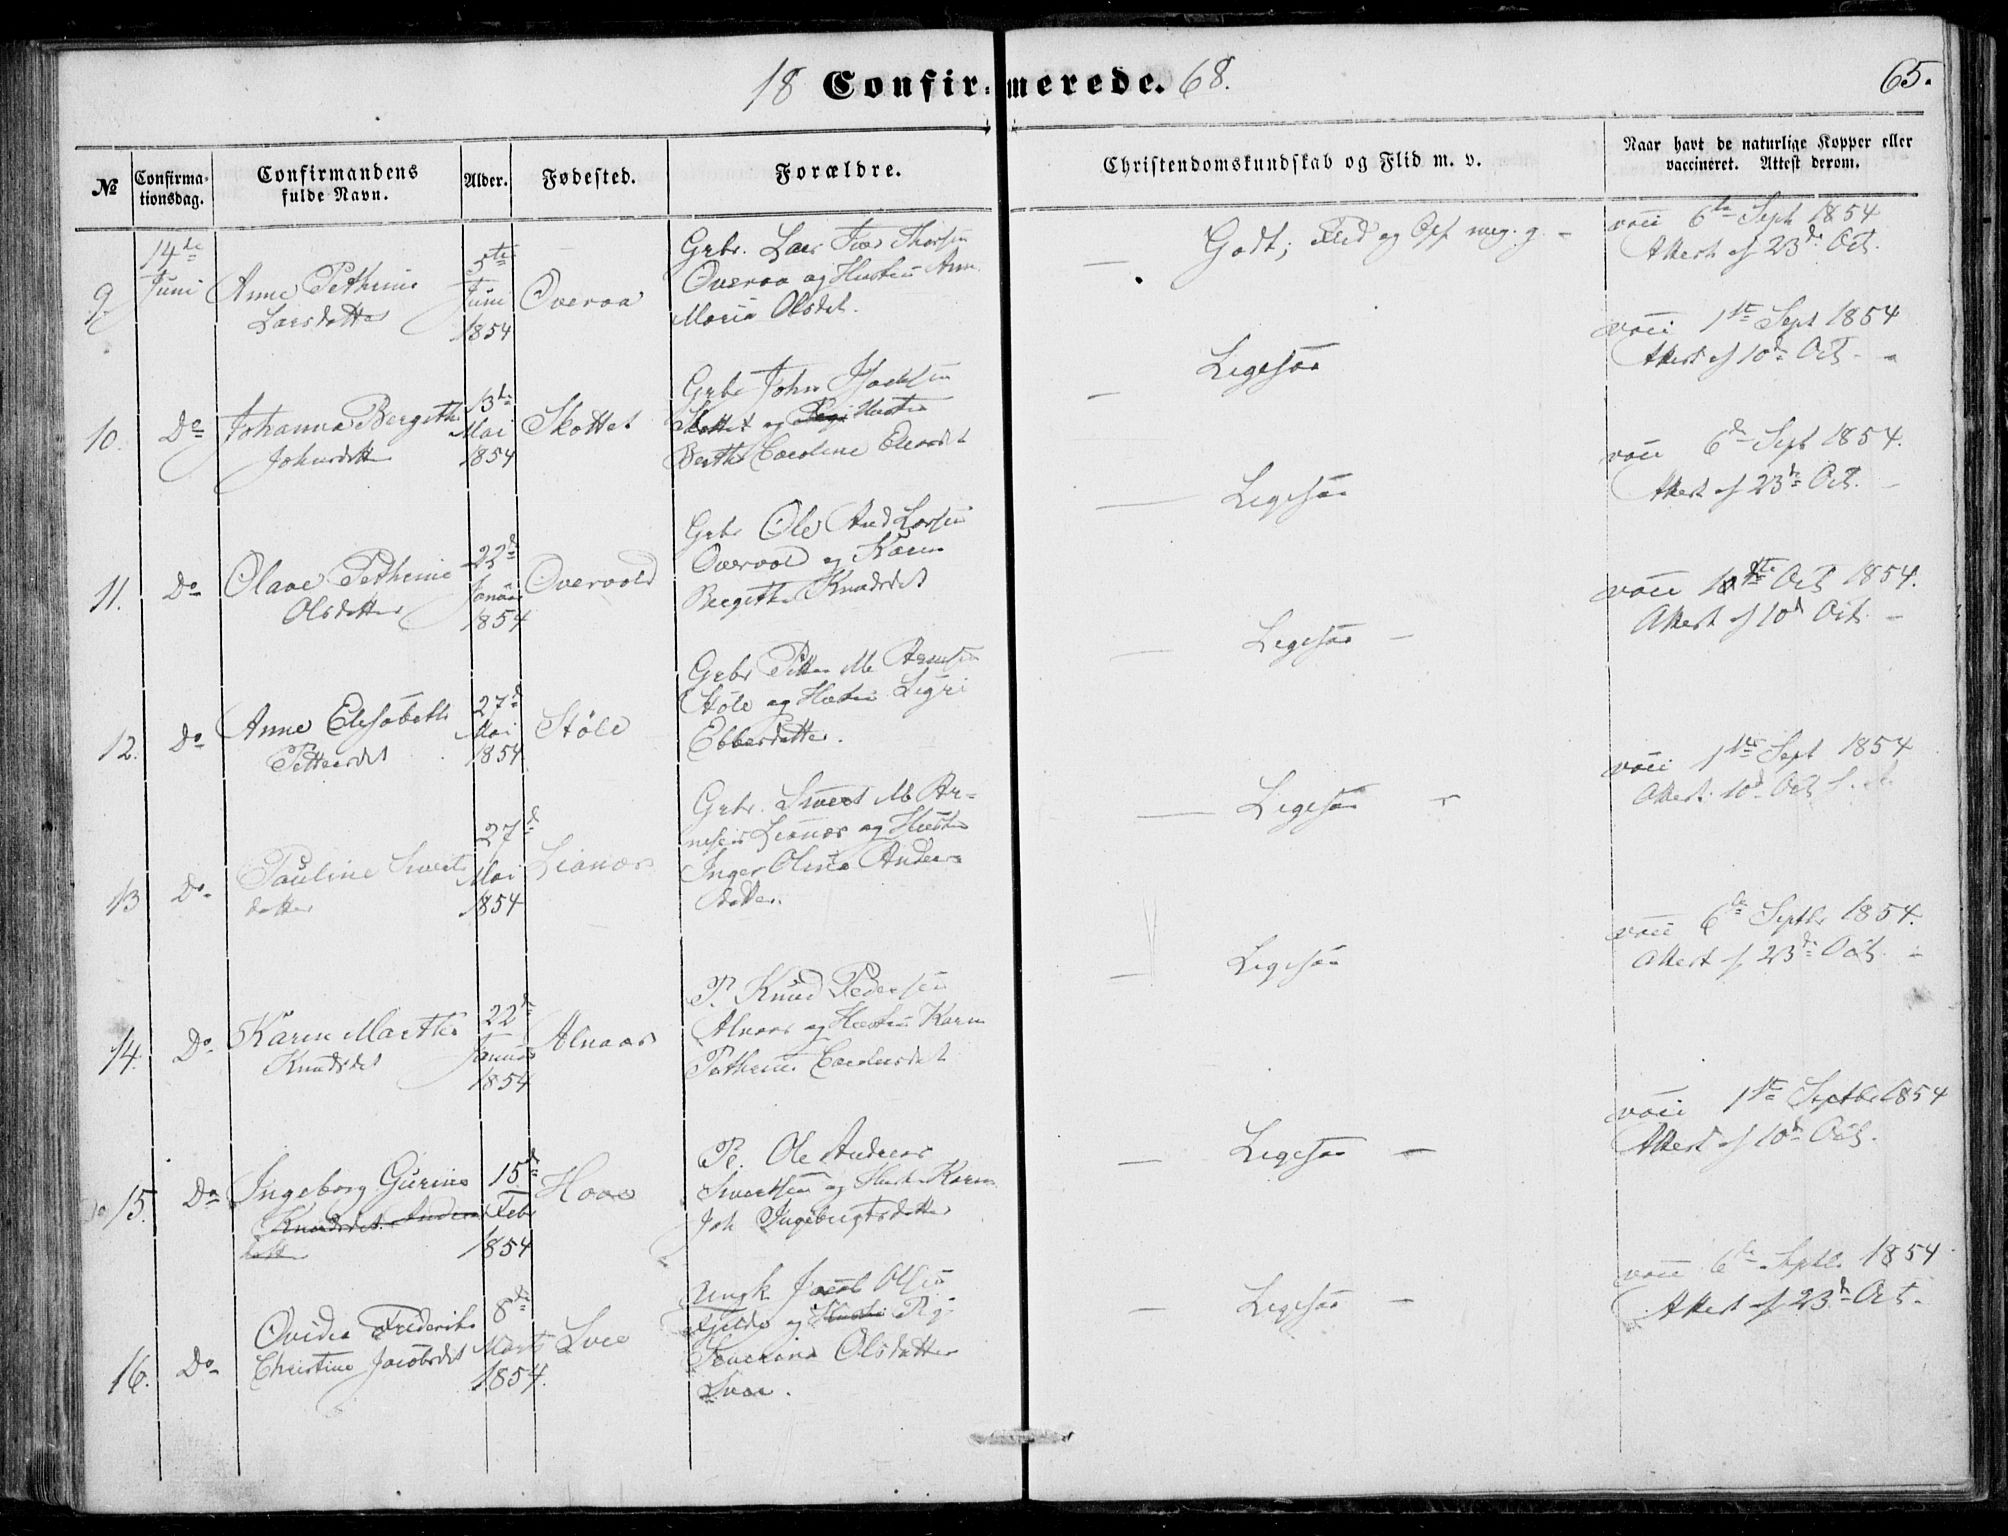 18 Confirmerede. 68.
65.
№
Confirma-
tionsdag.
Confirmandens
fulde Navn.
Alder.
Fødested.
Forældre.
Christendomskundskab og Flid m. v.
Naar havt de naturlige Kopper eller
vaccineret. Attest derom.
9.
14de
Juni
Anne Pethrine
Larsdatter
5te
Juni
1854
Overaa
Grbr. Lars
Overaa og Hustru Ane
Maria Olsdt.
Godt; Flid og Opf meg. g.
vacc 6te Sept 1854
Attest af 23de Oct.
10.
Do
Johanna Bergithe
Johnsdtt
13de
Mai
1854
Skottet
Grbr John
Skottet og Hustru
Berthe Caroline
Ligesaa
vacc 1ste Sept 1854
Attest af 10de Oct.
11.
Do
Olave Pethrine
Olsdatter
22de
Januar
1854
Overvold
Grbr Ole And Larsen
Overvold og Karen
Bergithe Knudsdt
Ligesaa
vacc 6te Sept 1854.
Attest af 23de Oct.
12.
Do
Anne Elisabeth
Pettersdt
27de
Mai
1854
Støle
Grbr Petter M
Støle og Hustru
Ebbesdatter.
Ligesaa
vacc Oct 1854.
Attest af 10de Oct.
13
Do
Pauline Sivert
datter
27de
Mai
1854
Lianes
Grbr. Sivert M Ar-
nesen Lianes og Hustru
Inger Olina Anders
datter.
Ligesaa
vacc 1ste Sept 1854
Attest 10de Oct
14.
Do
Karen Marthe
Knudsdt
22de
Januar
1854
Alnæs
P. Knud Pedersen
Alnæs og Hustru Karen
Pethrine
Ligesaa
vacc 6te Septbr 1854.
Attest af 23de Oct.
15.
Do
Ingeborg Gurine
Knudsdt. Anders
datt
15de
Febr
1854
Ole Andreas
Sivertsen og Hustr Karen
Joh Ingebrigtsdatter
Ligesaa
vacc 1ste Septbr 1854
Attest af 10de Oct.
16.
Do
Ovidia Frederikke
Christine Jacobsdt
8de
Marts
1854.
Ungk Jacob Olsen
og Hustru Pig
Severine Olsdatter
Ligesaa
vacc 6te Septbr 1854
Attest af 23de Oct.